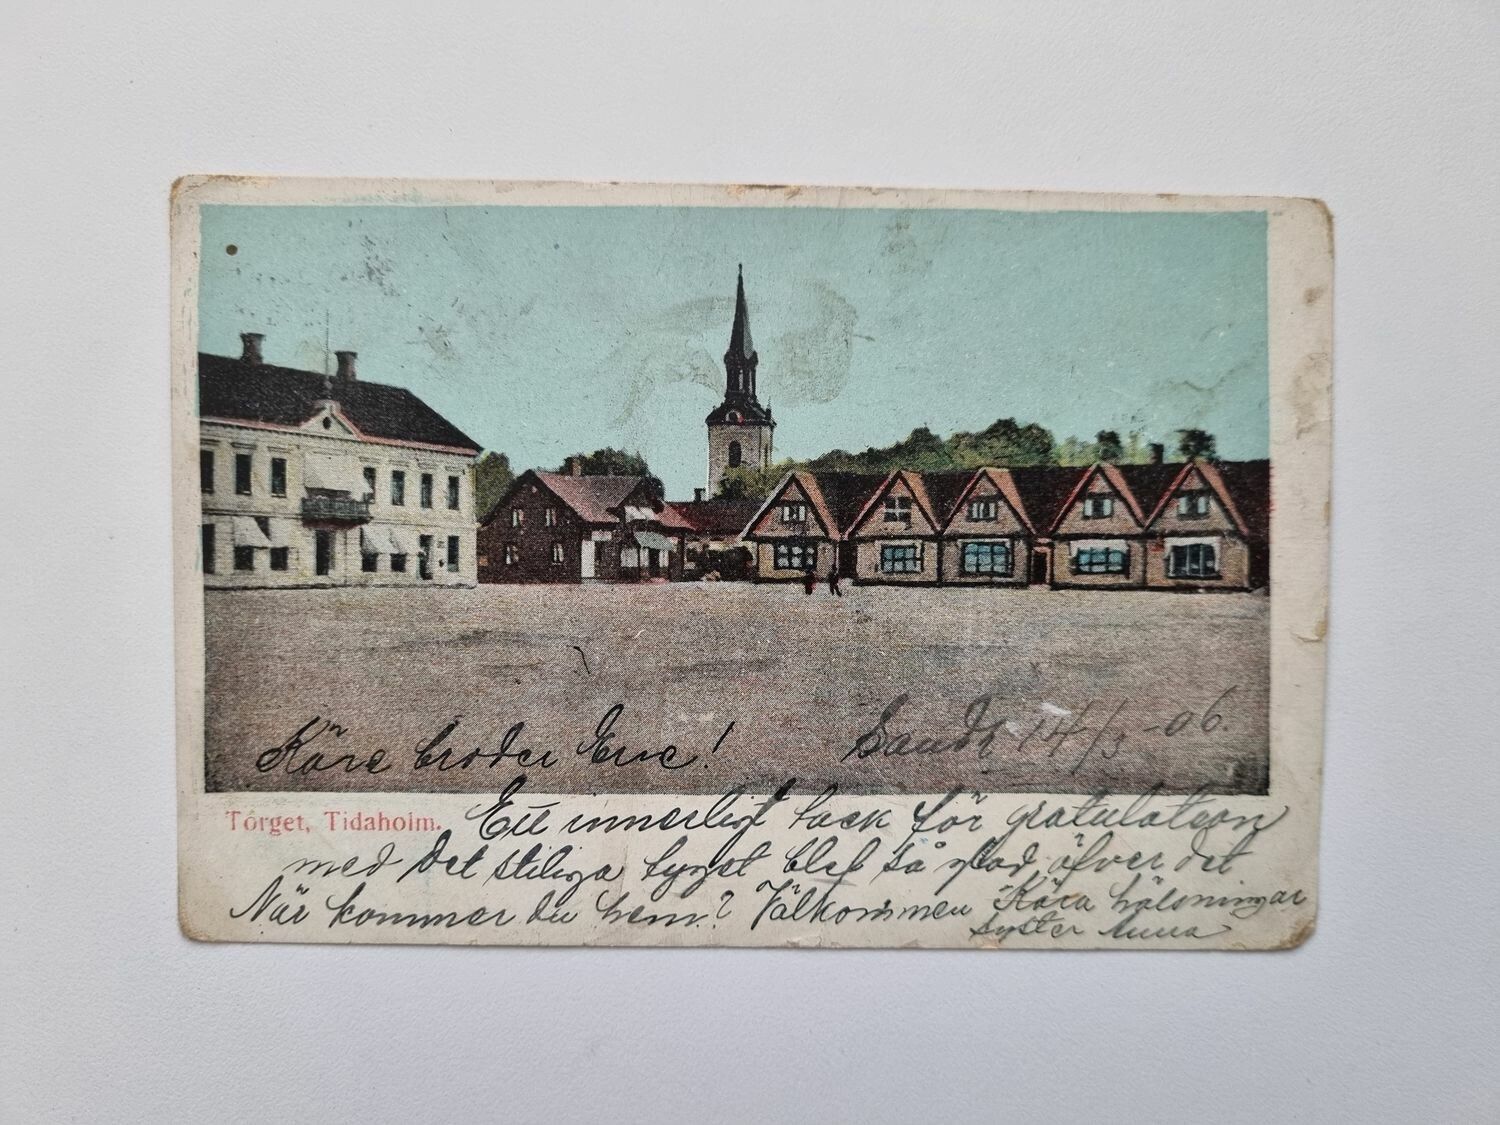 Käre broder Eric!
Sandt 14/3-06.
Torget, Tidaholm.
Ett innerligt tack för gratulation
med det stiliga tyget blef så glad öfver det
När kommer du hem? Välkommen Kära hälsningar
syster Anna